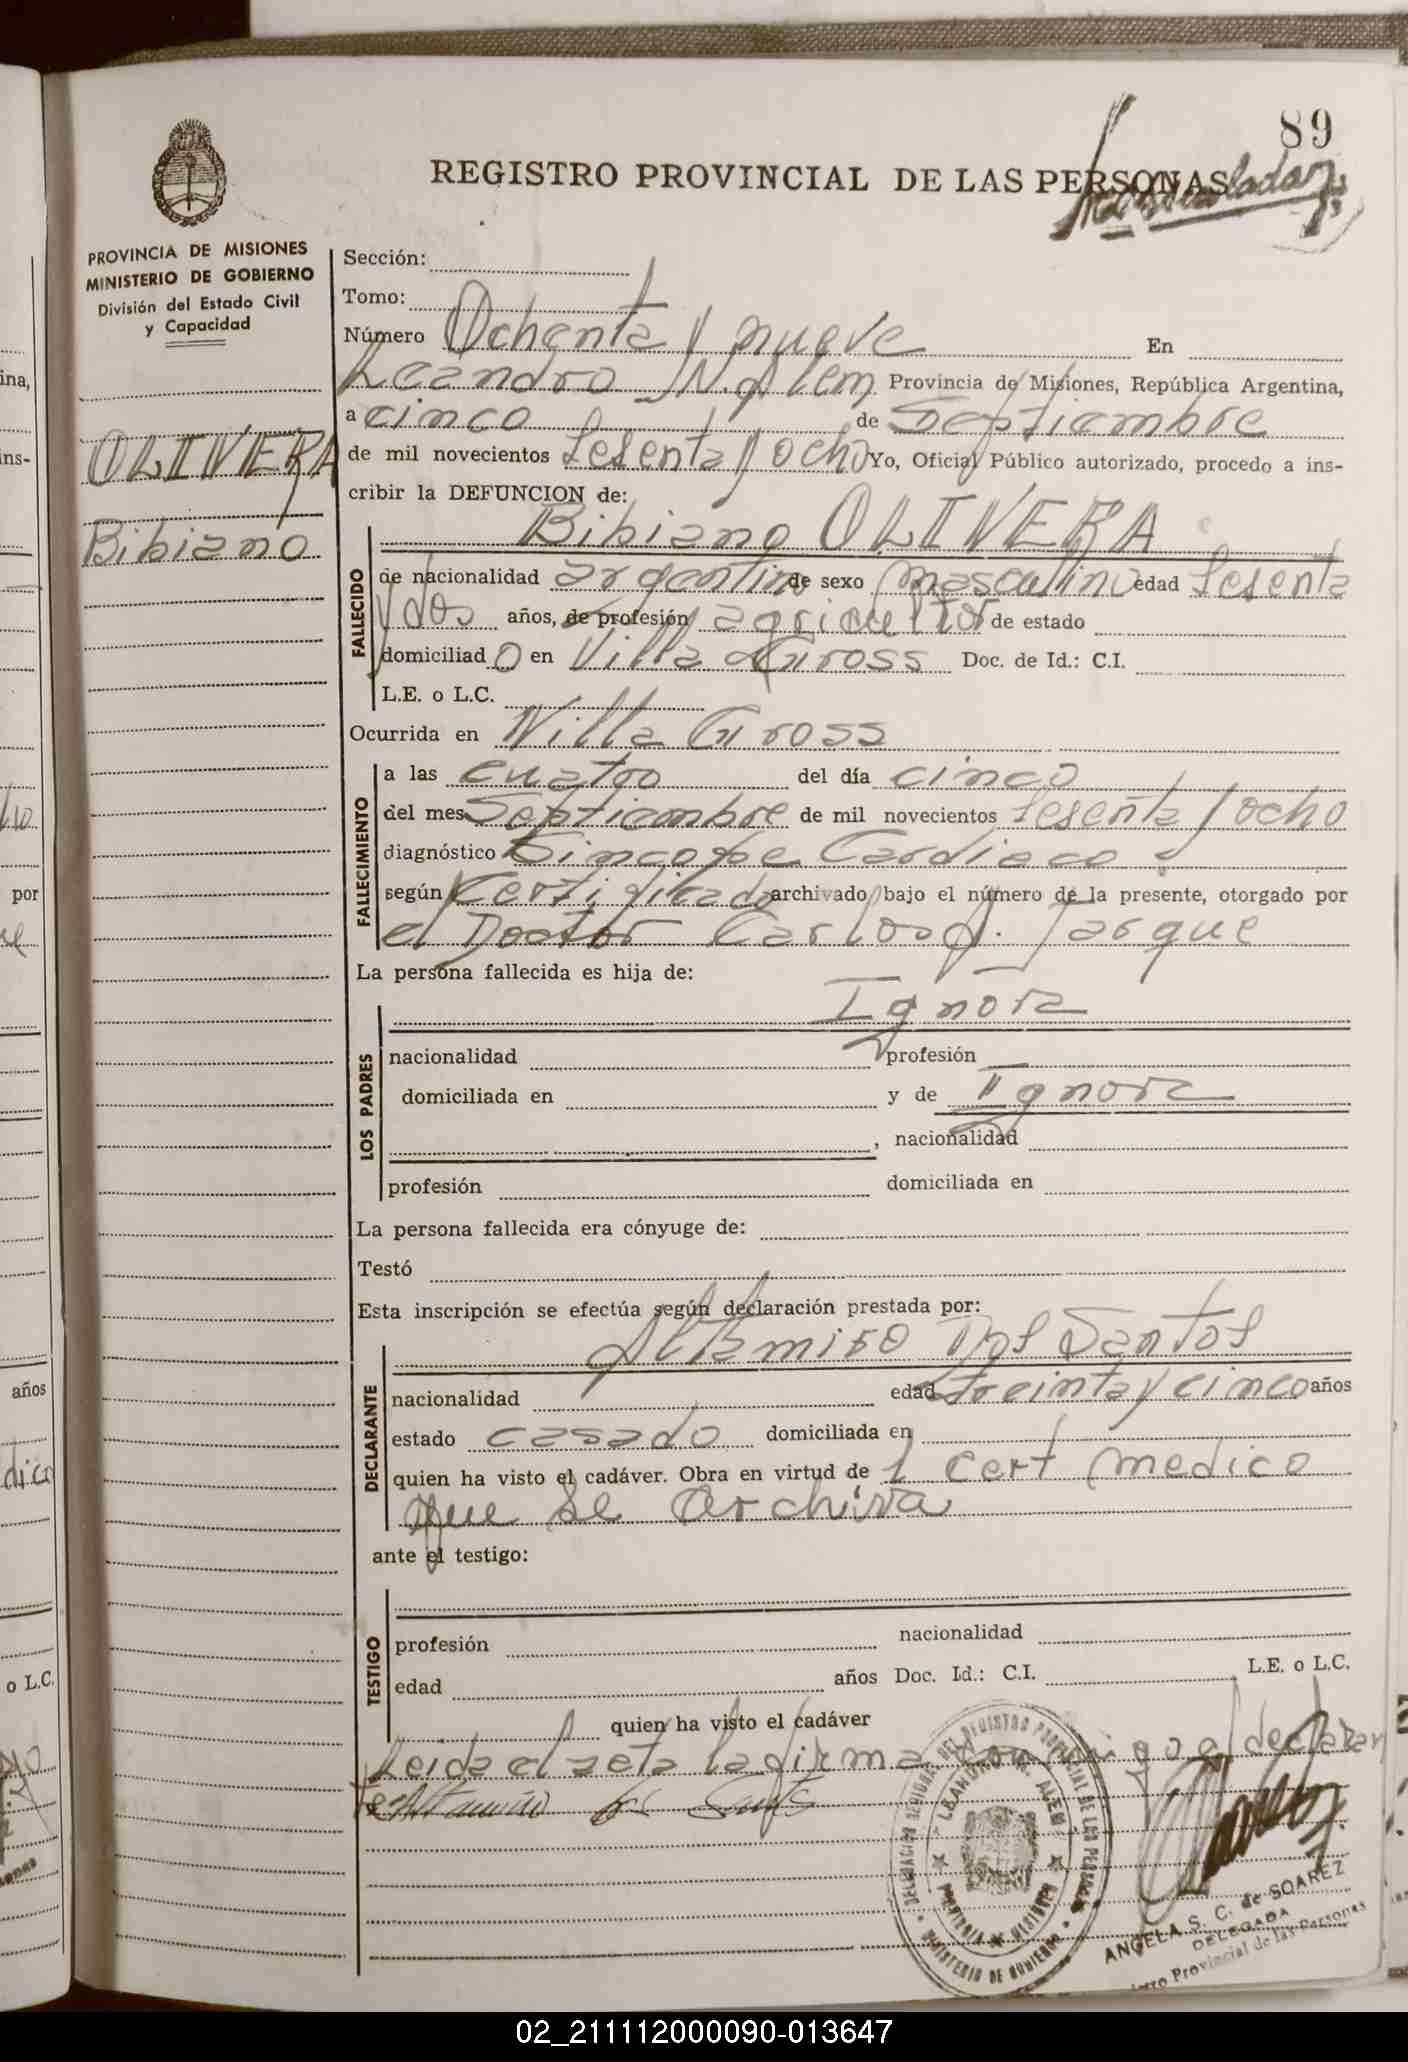 89
REGISTRO PROVINCIAL DE LAS PERSONAS
PROVINCIA DE MISIONES
MINISTERIO DE GOBIERNO
División del Estado Civil
y Capacidad
OLIVERA
Bibiano
Sección:
Tomo:
Número Ochenta y nueve En
Leandro N. Alem Provincia de Misiones, República Argentina,
a cinco de Septiembre
de mil novecientos sesenta y ocho Yo, Oficial Público autorizado, procedo a ins-
cribir la DEFUNCION de:
Bibiano OLIVERA
FALLECIDO
de nacionalidad argentina de sexo masculino edad sesenta
y dos años, de profesión agricultor de estado
domiciliado en Villa Gross Doc. de Id.: C.I.
L.E. o L.C.
Ocurrida en Villa Gross
FALLECIMIENTO
a las cuatro del día cinco
del mes Septiembre de mil novecientos sesenta y ocho
diagnóstico Sincope Cardiaco
según Certificado archivado bajo el número de la presente, otorgado por
el Doctor Carlos A. Jarque
La persona fallecida es hija de:
LOS PADRES
Ignora
nacionalidad profesión
domiciliada en y de Ignora
, nacionalidad
profesión domiciliada en
La persona fallecida era cónyuge de:
Testó
Esta inscripción se efectúa según declaración prestada por:
DECLARANTE
Altamiro Dos Santos
nacionalidad edad treinta y cinco años
estado casado domiciliada en
quien ha visto el cadáver. Obra en virtud de 1 cert medico
que se archiva
ante el testigo:
TESTIGO
profesión nacionalidad
edad años Doc. Id.: C.I. L.E. o L.C.
quien ha visto el cadáver
Leida el acta la firma conmigo el declaran
te
DELEGACION REGIONAL DEL REGISTRO PROVINCIAL DE LAS PERSONAS
LEANDRO N. ALEM
PROVINCIA DE MISIONES
MINISTERIO DE GOBIERNO
ANGELA S. C. de SOAREZ
DELEGADA
Provincial de las Personas
ina,
ins-
por
años
dico
o L.C.
02_211112000090-013647